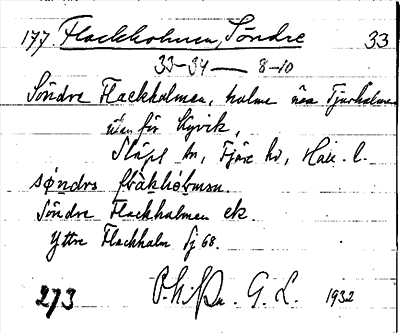 177. Flackholmen, Södre 33
33-34 — 8-10
Södre Flackholmen, holme nära Tjurholmen
utanför Kyvik,
Släps sn, Fjäre hd, Hall. l.
søndrə flàkhòlmən.
Södre Flackholmen ek.
Yttre Flackholm Sj 68.
273 G. L. 1932